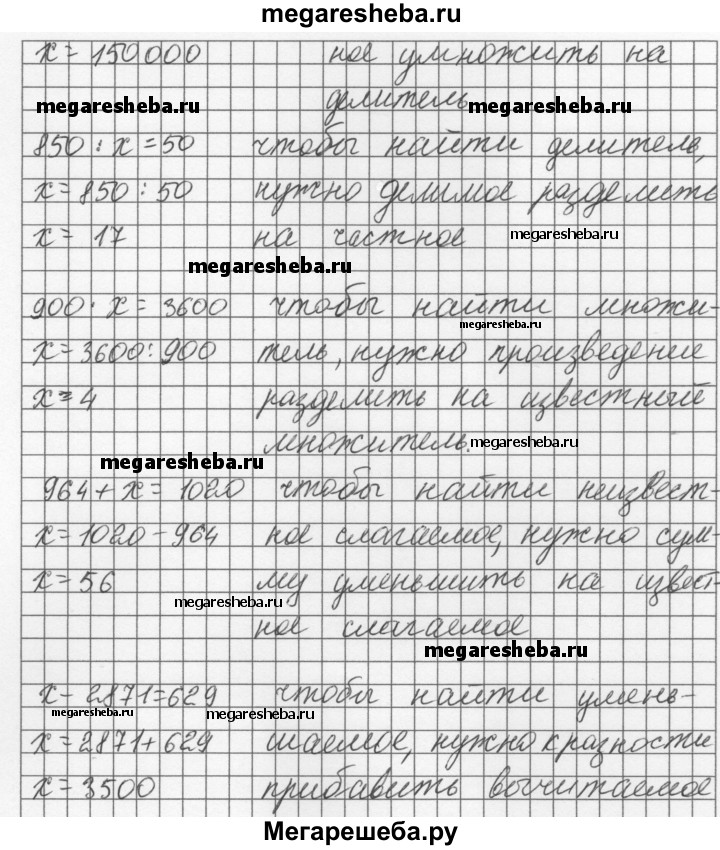 megaresheba.ru
x = 150000 ное умножить на
megaresheba.ru делитель megaresheba.ru
850 : x = 50 чтобы найти делитель,
x = 850 : 50 нужно делимое разделить
x = 17 на частное megaresheba.ru
megaresheba.ru
900 · x = 3600 чтобы найти множи-
megaresheba.ru
x = 3600 : 900 тель, нужно произведение
x = 4 разделить на известный
множитель. megaresheba.ru
megaresheba.ru
964 + x = 1020 чтобы найти неизвест-
x = 1020 - 964 ное слагаемое, нужно сум-
x = 56 му уменьшить на извест-
megaresheba.ru
ное слагаемое
megaresheba.ru
x - 2871 = 629 чтобы найти умень-
megaresheba.ru megaresheba.ru
x = 2871 + 629 шаемое, нужно к разности
x = 3500 прибавить вычитаемое
Мегарешеба.ру